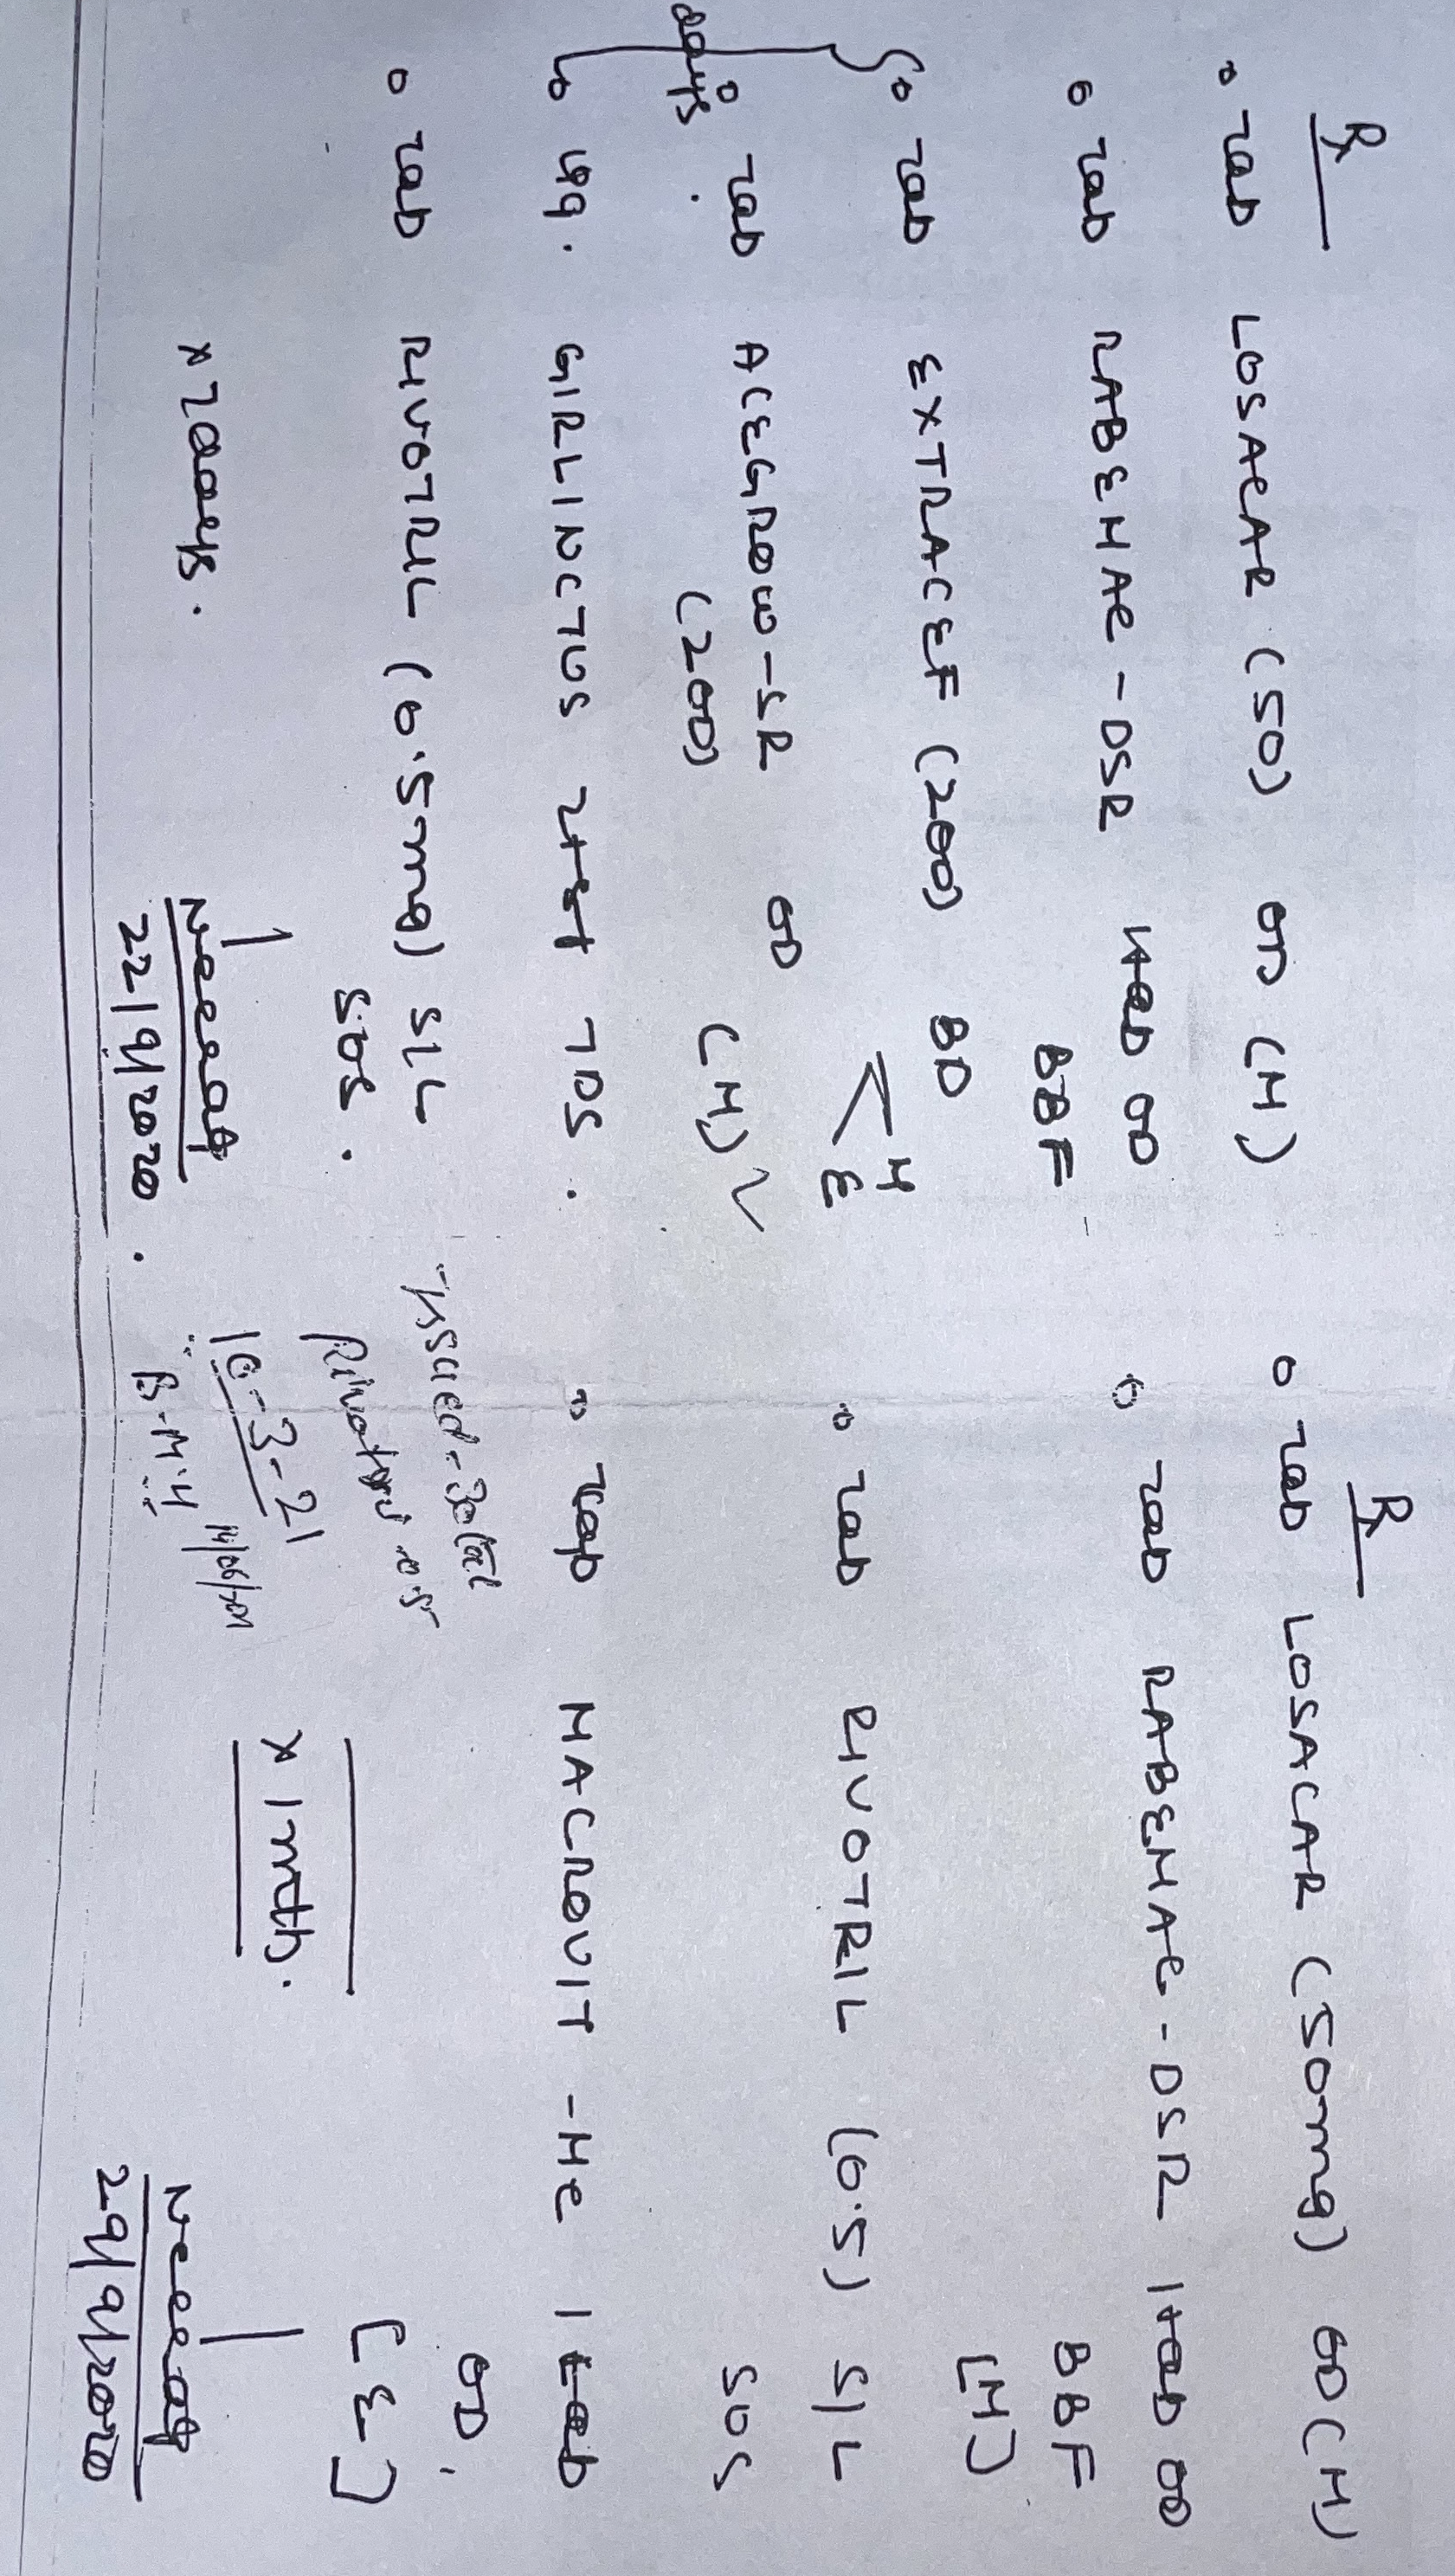 Rx
Tab LOSACAR (50) OD (M)
Tab RABEMAC - DSR 1 tab OD
BBF
Tab EXTRACEF (200) BD
M
E
Tab ACEGROW - SR OD
(200) (M)
days
Liq. GIRLINCTUS 2 tsf TDS.
Tab RIVOTRIL (0.5mg) S/L
SOS.
x 7 days.
22/9/2020.
Issued - 30 tab
Rivotril 0.5
10-3-21
14/06/2021
B.M.4
Rx
Tab LOSACAR (50mg) OD (M)
Tab RABEMAC - DSR 1 tab OD
BBF
[M]
Tab RIVOTRIL (0.5) S/L
SOS
MACROVIT - 1 tab
OD,
[E]
x 1 mth.
29/9/2020